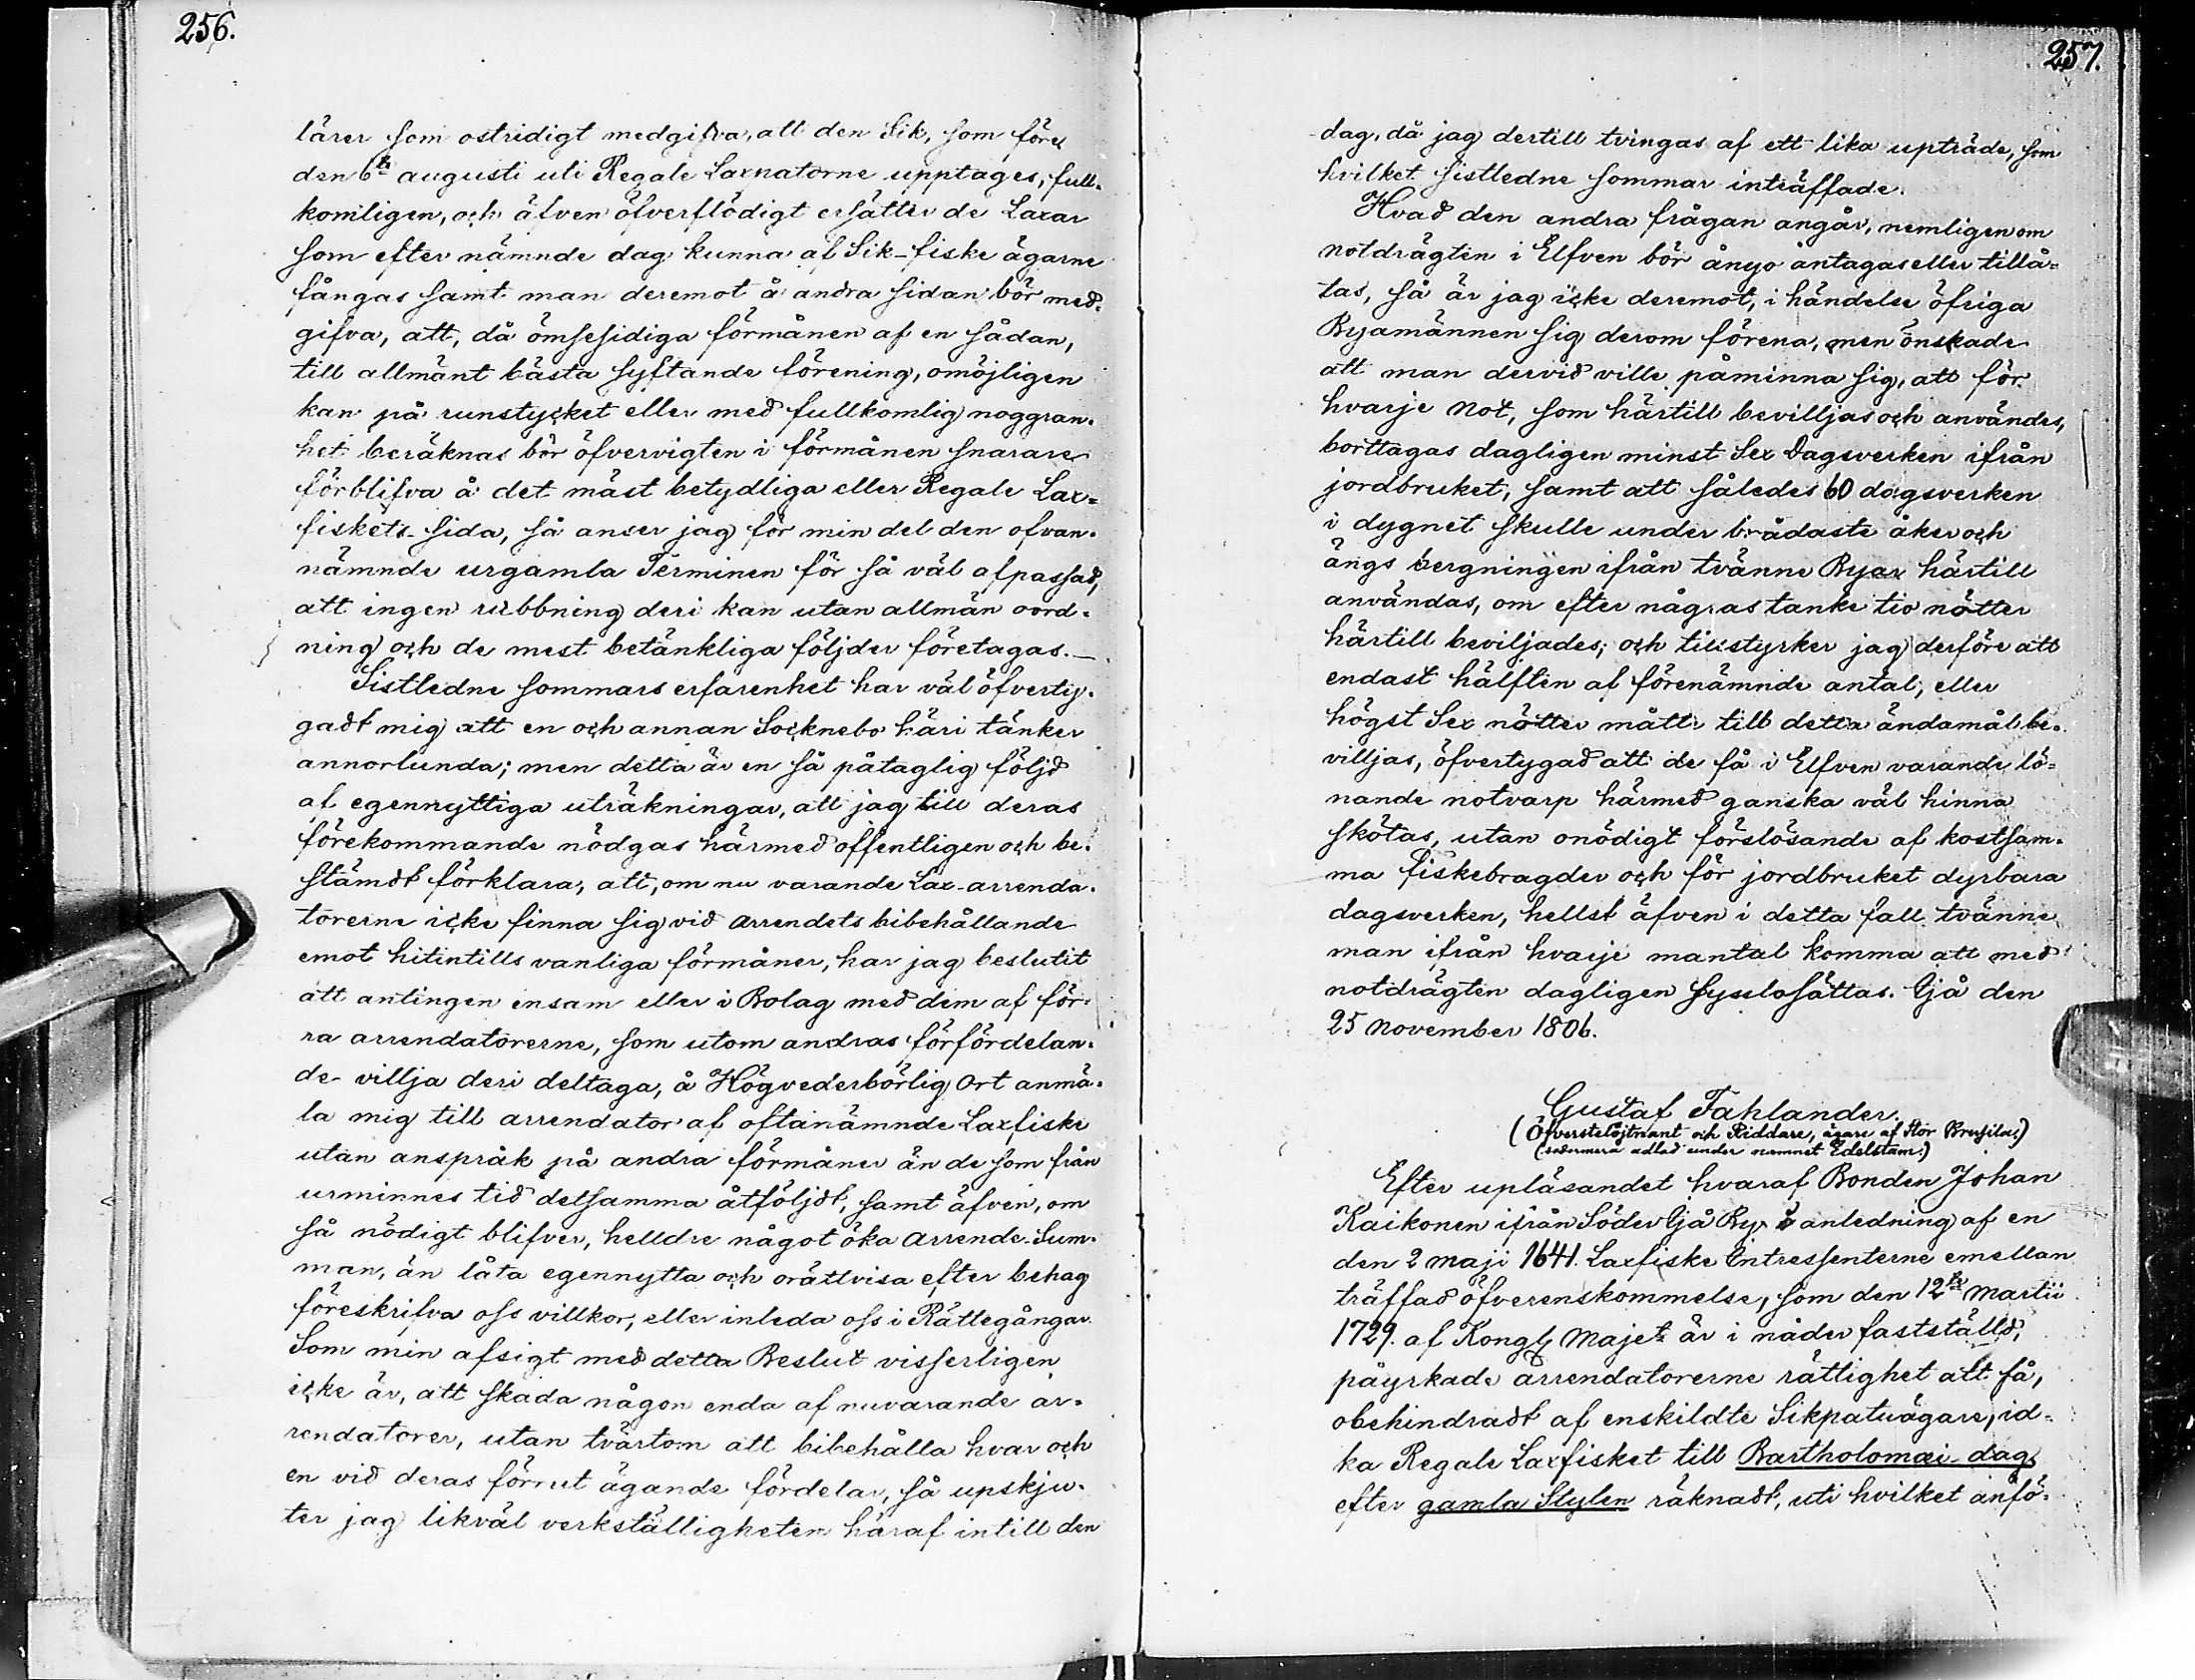 256.
lärer som ostridigt medgifva, att den Sik, som före
den 6te augusti uti Regale Laxpatorne upptages, full-
komligen, och äfven öfverflödigt ersätter de Laxar
som efter nämnde dag kunna af Sik-fiske ägarne
fångas samt man deremot å andra sidan bör med-
gifva, att, då ömsesidiga förmånen af en sådan,
till allmänt bästa syftande förening, omöjligen
kan på runstycket eller med fullkomlig noggran-
het beräknas bör öfvervigten i förmånen snarare
förblifva å det mäst betydliga eller Regale Lax-
fiskets sida, så anser jag för min del den ofvan-
nämnde urgamla Terminen för så väl afpassad,
att ingen rubbning deri kan utan allmän oord-
ning och de mest betänkliga följder företagas.—
Sistledne sommars erfarenhet har väl öfverty-
gadt mig att en och annan Socknebo häri tänker
annorlunda; men detta är en så påtaglig följd
af egennyttiga uträkningar, att jag till deras
förekommande nödgas härmed offentligen och be-
stämdt förklara, att, om nu varande Lax-arrenda-
torerne icke finna sig vid arrendets bibehållande
emot hitintills vanliga förmåner, har jag beslutit
att antingen ensam eller i Bolag med dem af för-
ra arrendatorerne, som utom andras förfördelan-
de villja deri deltaga, å Högvederbörlig ort anmä-
la mig till arrendator af oftanämnde Laxfiske
utan anspråk på andra förmåner än de som från
urminnes tid detsamma åtföljdt, samt äfven, om
så nödigt blifver, helldre något öka arrende-Sum-
man, än låta egennytta och orättvisa efter behag
föreskrifva oss villkor, eller inleda oss i Rättegångar.
Som min afsigt med detta Beslut visserligen
icke är, att skada någon enda af nuvarande ar-
rendatorer, utan tvärtom att bibehålla hvar och
en vid deras förrut ägande fördelar, så upskju-
ter jag likväl verkställigheten häraf intill den
257.
dag, då jag dertill tvingas af ett lika upträde, som
hvilket sistledne sommar inträffade.
Hvad den andra frågan angår, nemligen om
notdrägten i Elfven bör ånyo antagas eller tillå-
tas, så är jag icke deremot, i händelse öfriga
Byamännen sig derom förena, men önskade
att man dervid ville påminna sig, att för
hvarje Not, som härtill bevilljas och användes,
borttagas dagligen minst Sex Dagsverken ifrån
jordbruket, samt att således 60 dagsverken
i dygnet skulle under brådaste åker och
ängs bergningen ifrån tvänne Byar härtill
användas, om efter någras tanke tio nötter
härtill beviljades; och tillstyrker jag derföre att
endast hälften af förenämnde antal, eller
högst Sex nötter måtte till detta ändamål be-
villjas, öfvertygad att de få i Elfven varande lö-
nande notvarp härmed ganska väl hinna
skötas, utan onödigt förslösande af kostsam-
ma fiskebragder och för jordbruket dyrbara
dagsverken, hellst äfven i detta fall tvänne
man ifrån hvarje mantal komma att med
notdrägten dagligen sysslosättas. Ijå den
25 November 1806.
Gustaf Fahlander.
(Öfverstelöjtnant och Riddare, ägare af Stor Brusila)
(sedermera adlad under namnet Edelstam)
Efter upläsandet hvaraf Bonden Johan
Kaikonen ifrån Söder Ijå By, i anledning af en
den 2 maji 1641. Laxfiske Intressenterne emellan
träffad öfverenskommelse, som den 12te Martii
1729. af Kongl. Majet är i nåder fastställd,
påyrkade arrendatorerne rättighet att få,
obehindradt af enskildte Sikpatuägare, id-
ka Regale Laxfisket till Bartholomæi-dag
efter gamla Stylen räknadt, uti hvilket anfö-